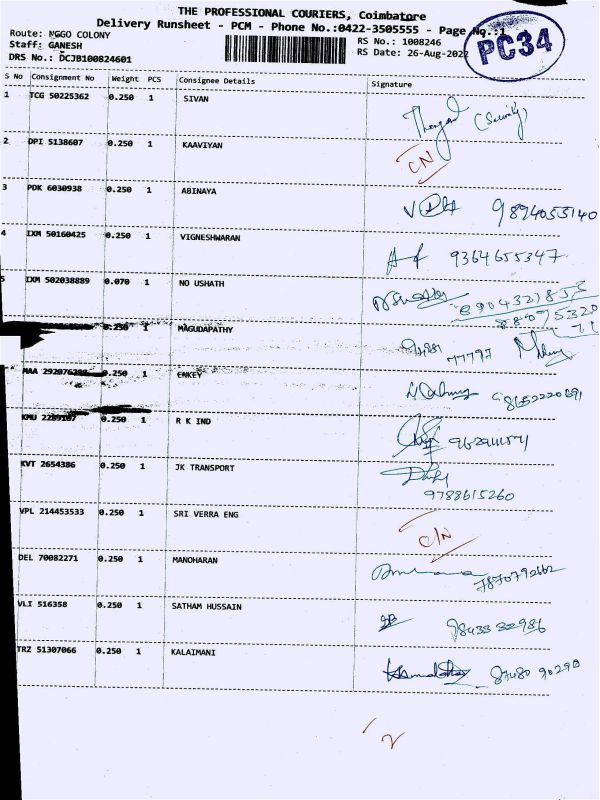 THE PROFESSIONAL COURIERS, Coimbatore
Delivery Runsheet - PCM - Phone No.:0422-3505555 - Page No.:1
Route: NGGO COLONY
Staff: GANESH
DRS No.: DCJB100824601
RS No.: 1008246
RS Date: 26-Aug-2022
PC34
S No Consignment No Weight PCS Consignee Details Signature
1 TCG 50225362 0.250 1 SIVAN (Security)
2 DPI 5138607 0.250 1 KAAVIYAN CN
3 PDK 6030938 0.250 1 ABINAYA 9894055140
4 IXM 50160425 0.250 1 VIGNESHWARAN 9364655347
5 IXM 502038889 0.070 1 NO USHATH
0.250 1 MAGUDAPATHY 77797
MAA 0.250 1 ENKEY
KMU 0.250 1 R K IND
KVT 2654386 0.250 1 JK TRANSPORT
9788615260
VPL 214453533 0.250 1 SRI VERRA ENG C/N
DEL 70082271 0.250 1 MANOHARAN 7870792662
VLI 516358 0.250 1 SATHAM HUSSAIN
TRZ 51307066 0.250 1 KALAIMANI 87480 90290
2